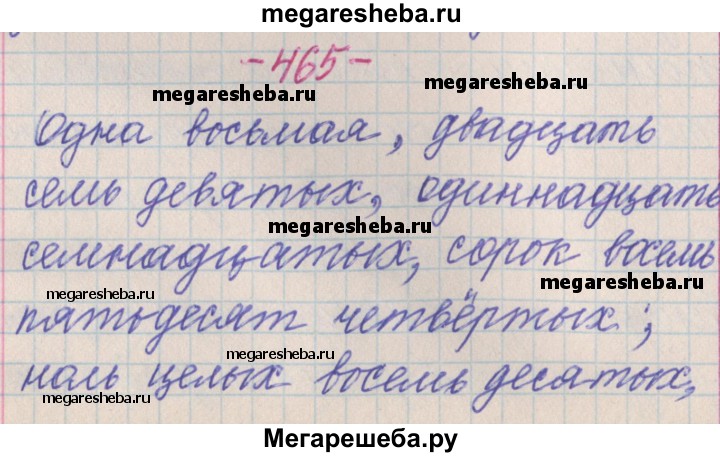 megaresheba.ru
-465-
megaresheba.ru
megaresheba.ru
Одна восьмая, двадцать
семь девятых, одиннадцать
megaresheba.ru
семнадцатых, сорок восемь
megaresheba.ru
megaresheba.ru
пятьдесят четвёртых;
megaresheba.ru
ноль целых восемь десятых,
megaresheba.ru
Мегарешеба.ру